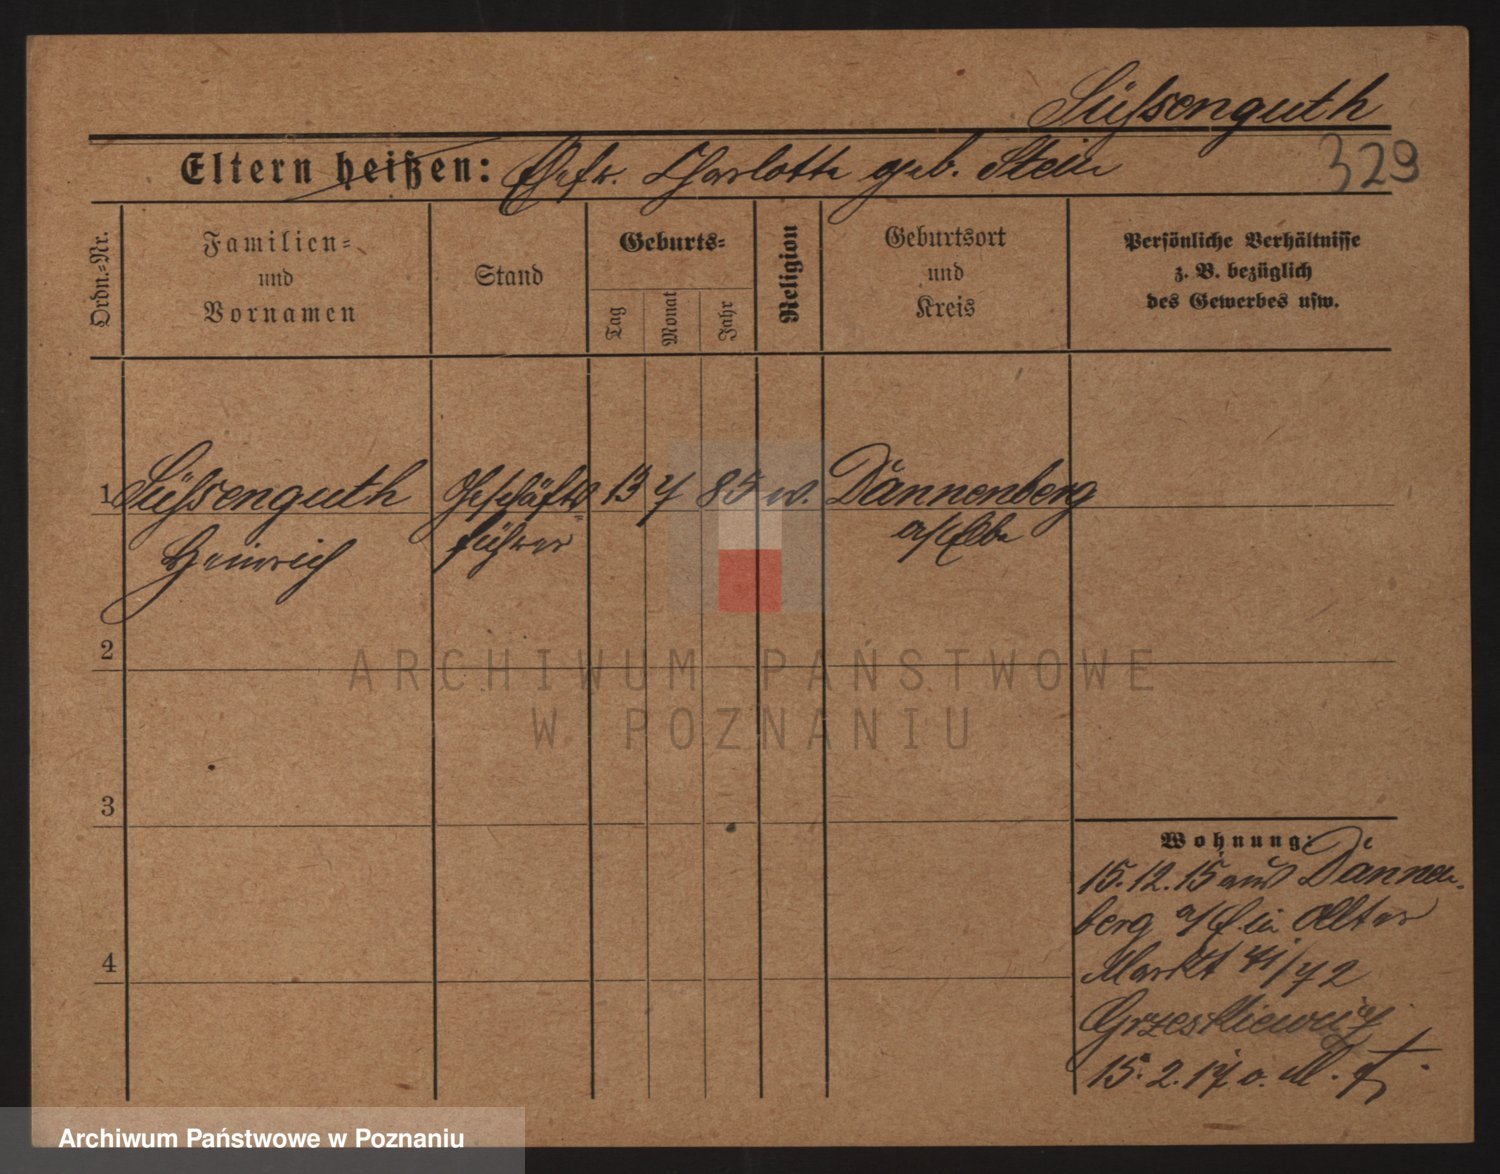 Süssenguth
Eltern heißen: Ehefr. Charlotte geb. Stein
329
Ordn.-Nr.
Familien-
und
Vornamen
Stand
Geburts-
Tag
Monat
Jahr
Religion
Geburtsort
und
Kreis
Persönliche Verhältnisse
z. B. bezüglich
des Gewerbes usw.
1 Süssenguth Geschäfts- 13 7 85 w. Dannenberg
Heinrich führer a/Elbe
2
3
4
Wohnung:
15.12.15 aus Dannen-
berg a/E in Alter
Markt 71/72
Grzeskiewicz
15.2.17 o. M.
ARCHIWUM PAŃSTWOWE
W POZNANIU
Archiwum Państwowe w Poznaniu